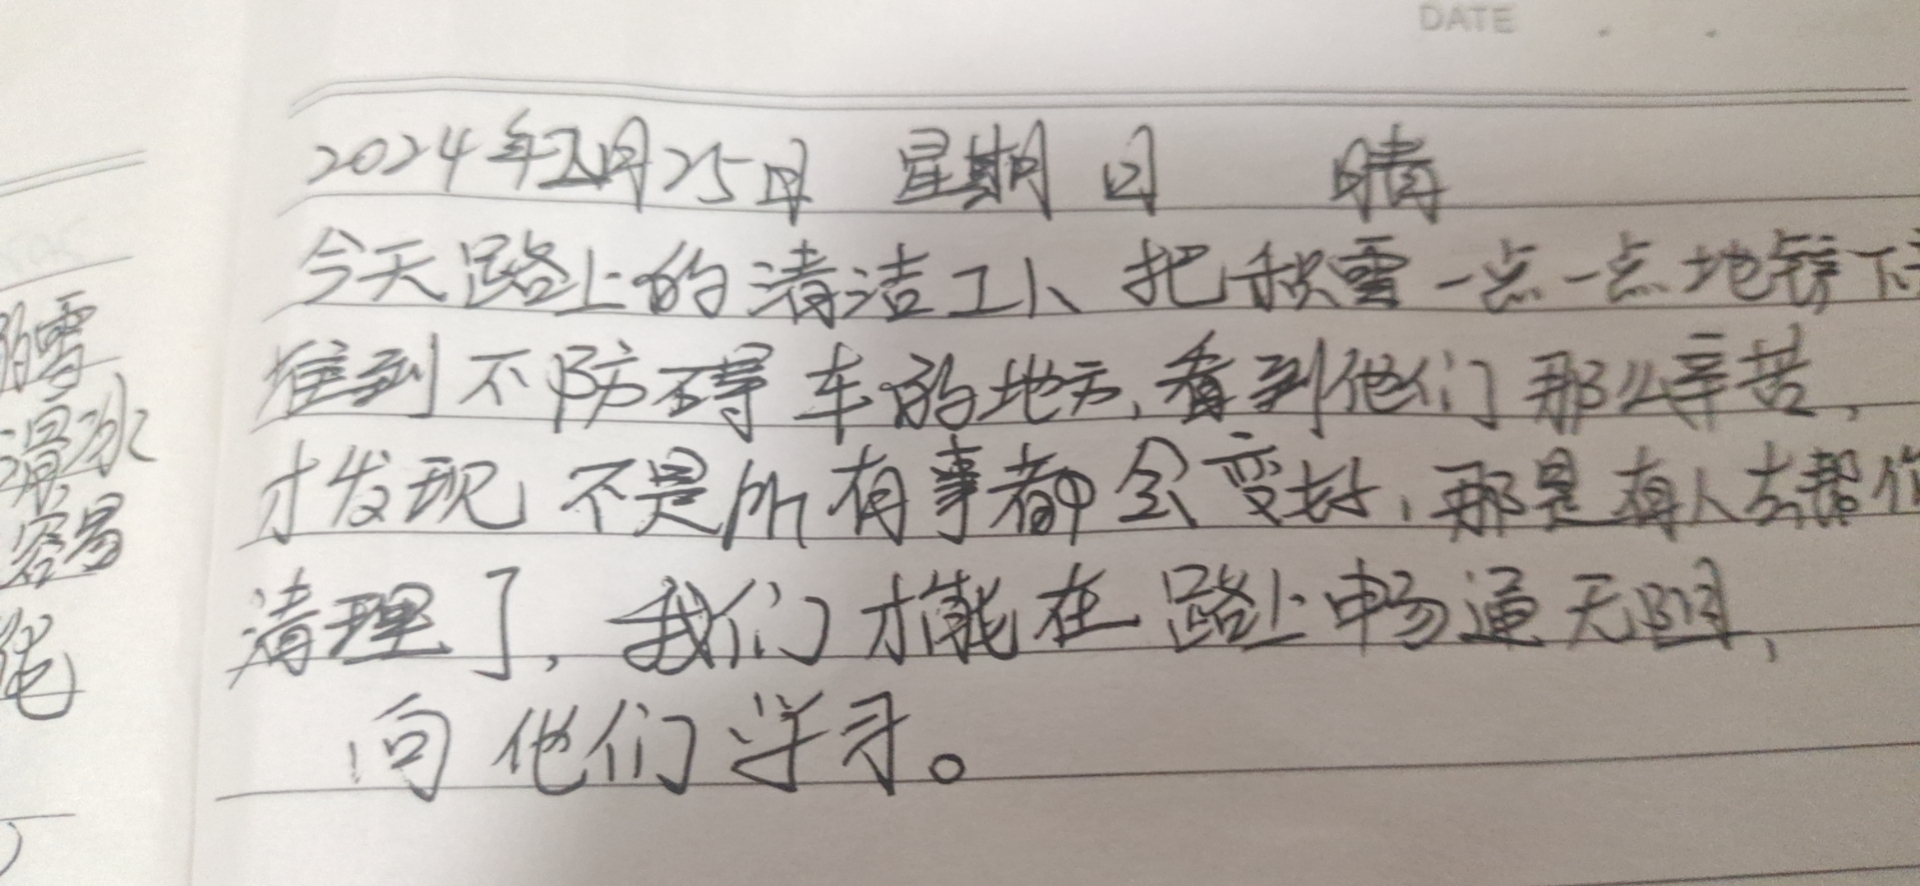 DATE
2024年2月25日 星期日 晴
今天路上的清洁工人把积雪一点一点地铲下
堆到不防碍车的地方,看到他们那么辛苦,
才发现不是所有事都会变好,那是有人去帮你
清理了,我们才能在路上畅通无阻,
向他们学习。
的雪
滑冰
容易